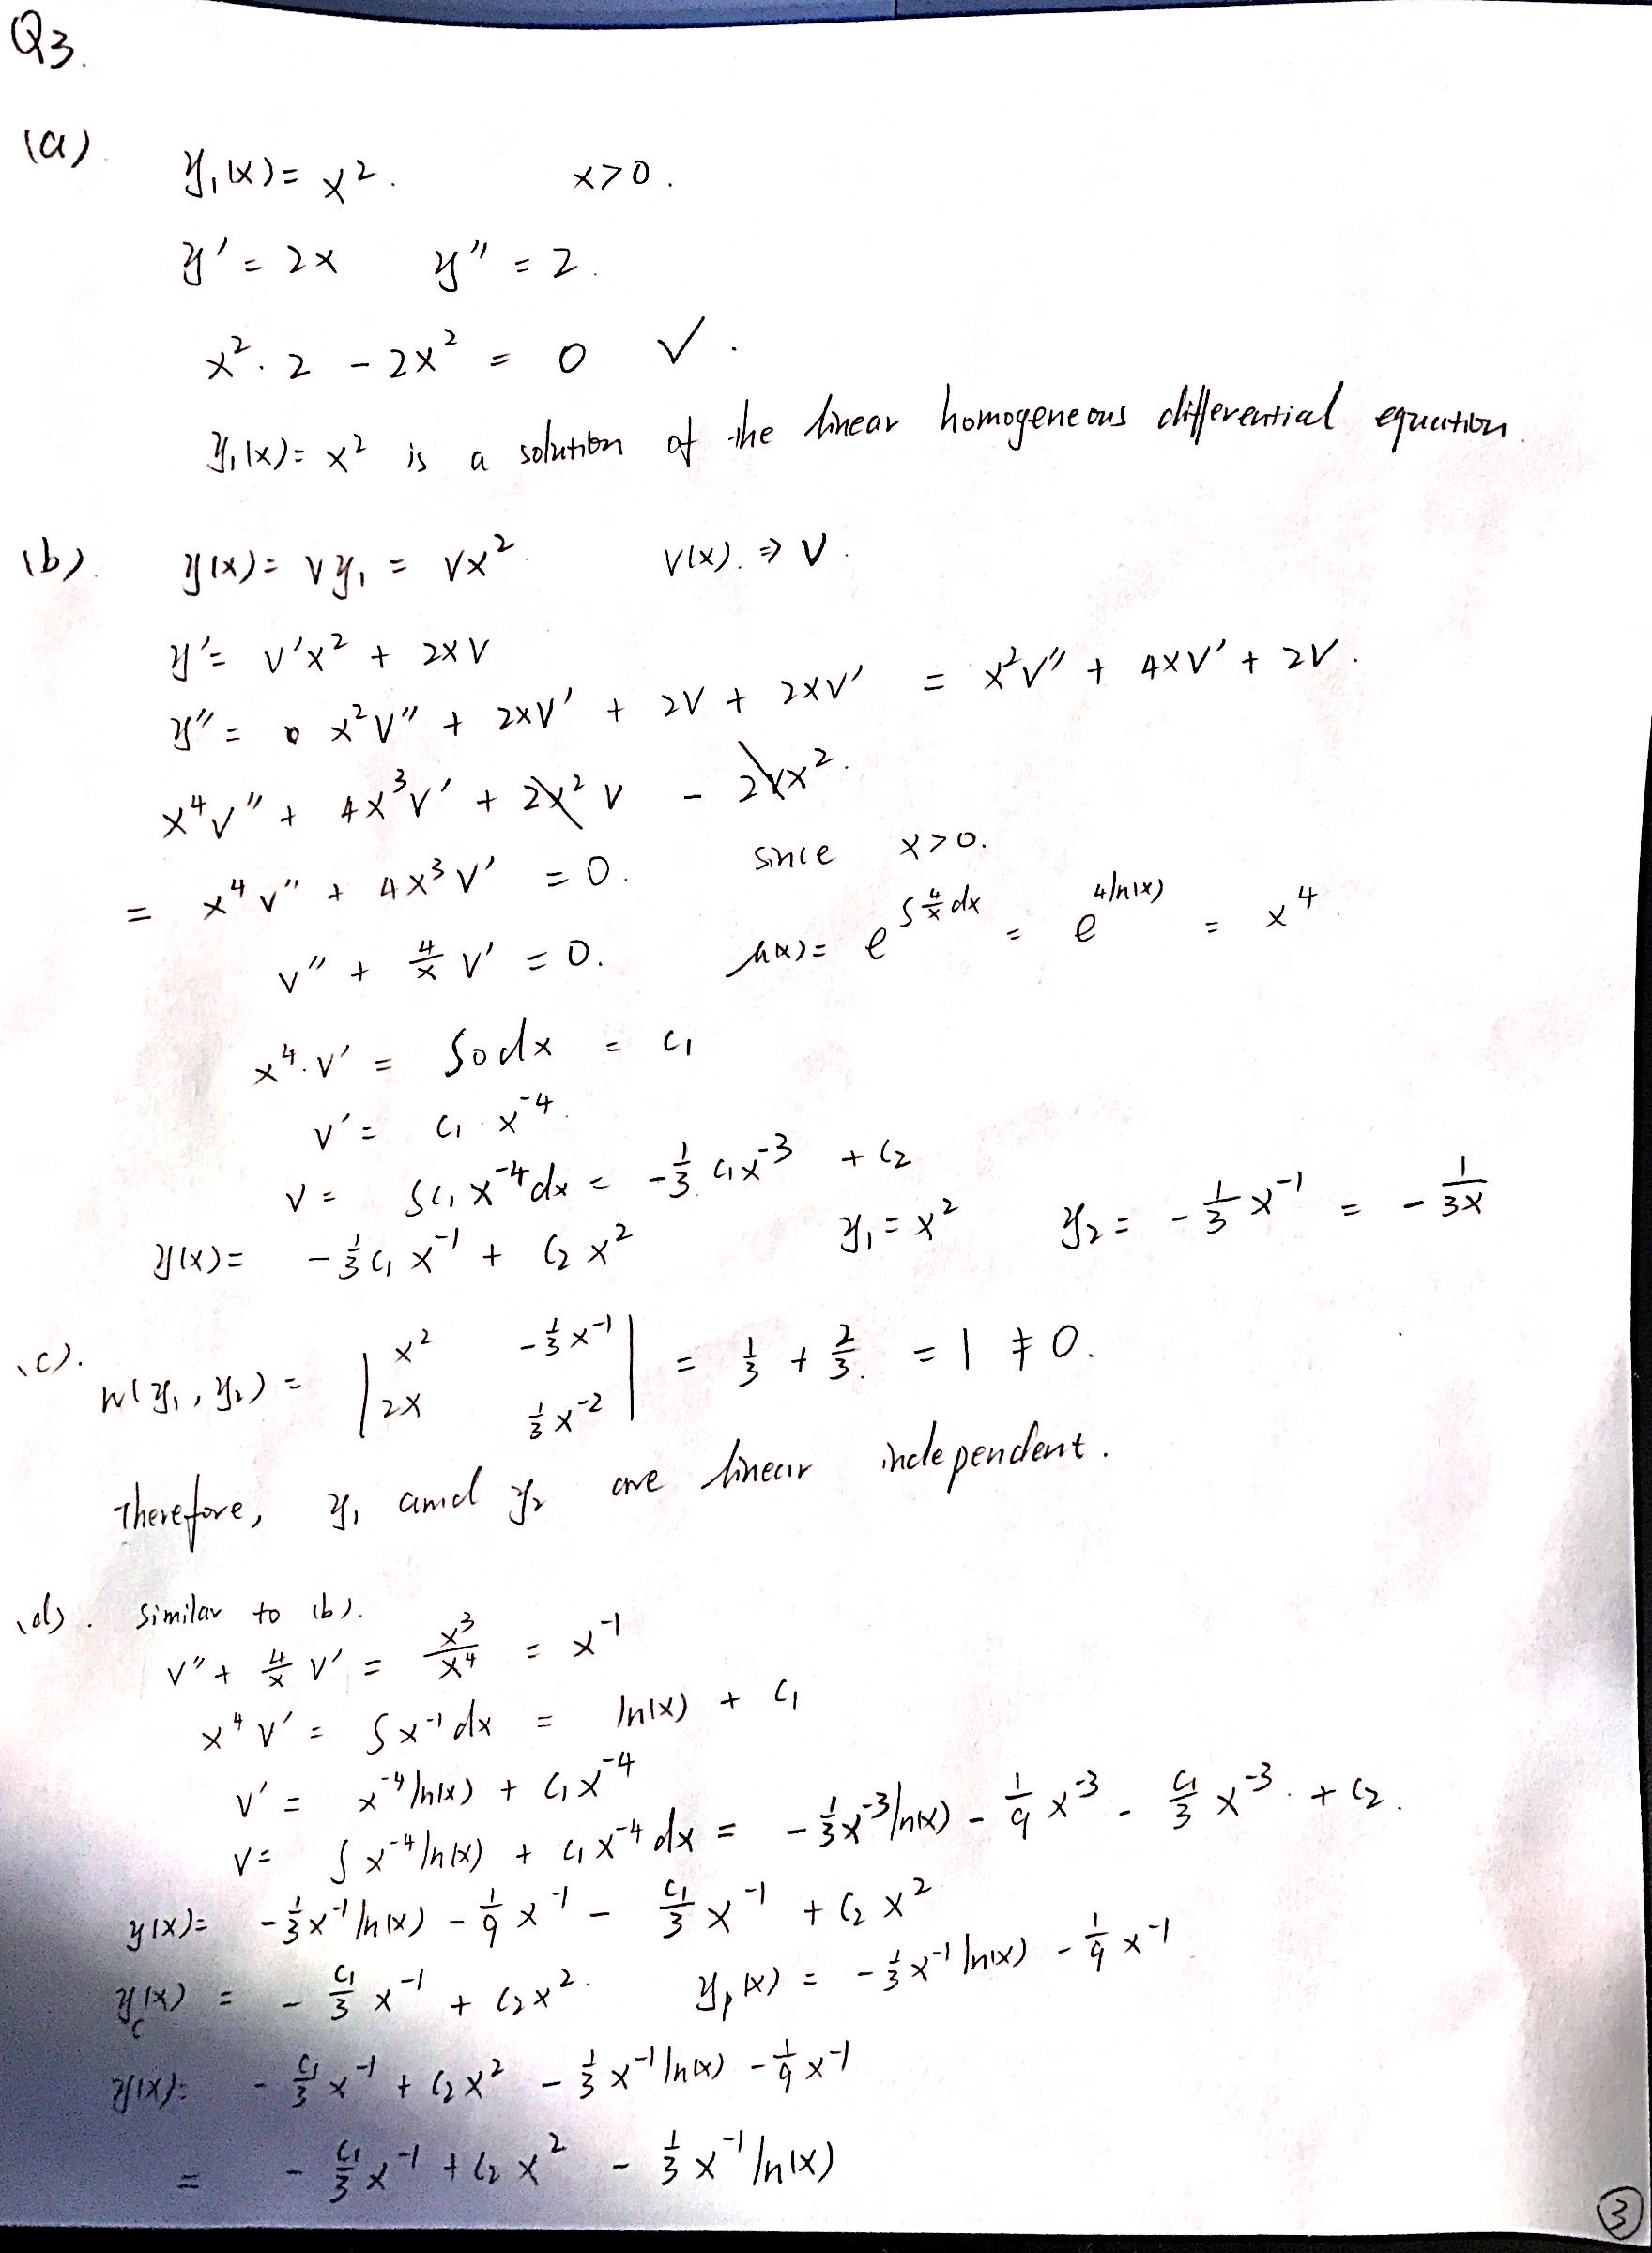 Q3.
(a). y₁(x) = x². x>0.
y' = 2x y'' = 2.
x²·2 - 2x² = 0 ✓.
y₁(x) = x² is a solution of the linear homogeneous differential equation.
(b). y(x) = vy₁ = vx². v(x). ⇒ v.
y' = v'x² + 2xv
y'' = x²v'' + 2xv' + 2v + 2xv' = x²v'' + 4xv' + 2v.
x⁴v'' + 4x³v' + 2x²v - 2vx².
= x⁴v'' + 4x³v' = 0. since x>0.
v'' + 4/x v' = 0. μ(x) = e^(∫4/x dx) = e^(4ln(x)) = x⁴.
x⁴·v' = ∫0dx = c₁
v' = c₁·x⁻⁴.
v = ∫c₁x⁻⁴dx = -1/3 c₁x⁻³ + c₂
y(x) = -1/3 c₁x⁻¹ + c₂x² y₁ = x² y₂ = -1/3 x⁻¹ = -1/(3x)
(c). W(y₁, y₂) = | x² -1/3 x⁻¹ | = 1/3 + 2/3. = 1 ≠ 0.
| 2x 1/3 x⁻² |
Therefore, y₁ and y₂ are linear independent.
(d). Similar to (b).
v'' + 4/x v' = x³/x⁴ = x⁻¹
x⁴v' = ∫x⁻¹dx = ln(x) + c₁
v' = x⁻⁴ln(x) + c₁x⁻⁴
v = ∫x⁻⁴ln(x) + c₁x⁻⁴dx = -1/3 x⁻³ln(x) - 1/9 x⁻³ - c₁/3 x⁻³ + c₂.
y(x) = -1/3 x⁻¹ln(x) - 1/9 x⁻¹ - c₁/3 x⁻¹ + c₂x²
y_c(x) = -c₁/3 x⁻¹ + c₂x². y_p(x) = -1/3 x⁻¹ln(x) - 1/9 x⁻¹
y(x) = -c₁/3 x⁻¹ + c₂x² - 1/3 x⁻¹ln(x) - 1/9 x⁻¹
= -c₁/3 x⁻¹ + c₂x² - 1/3 x⁻¹ln(x)
③